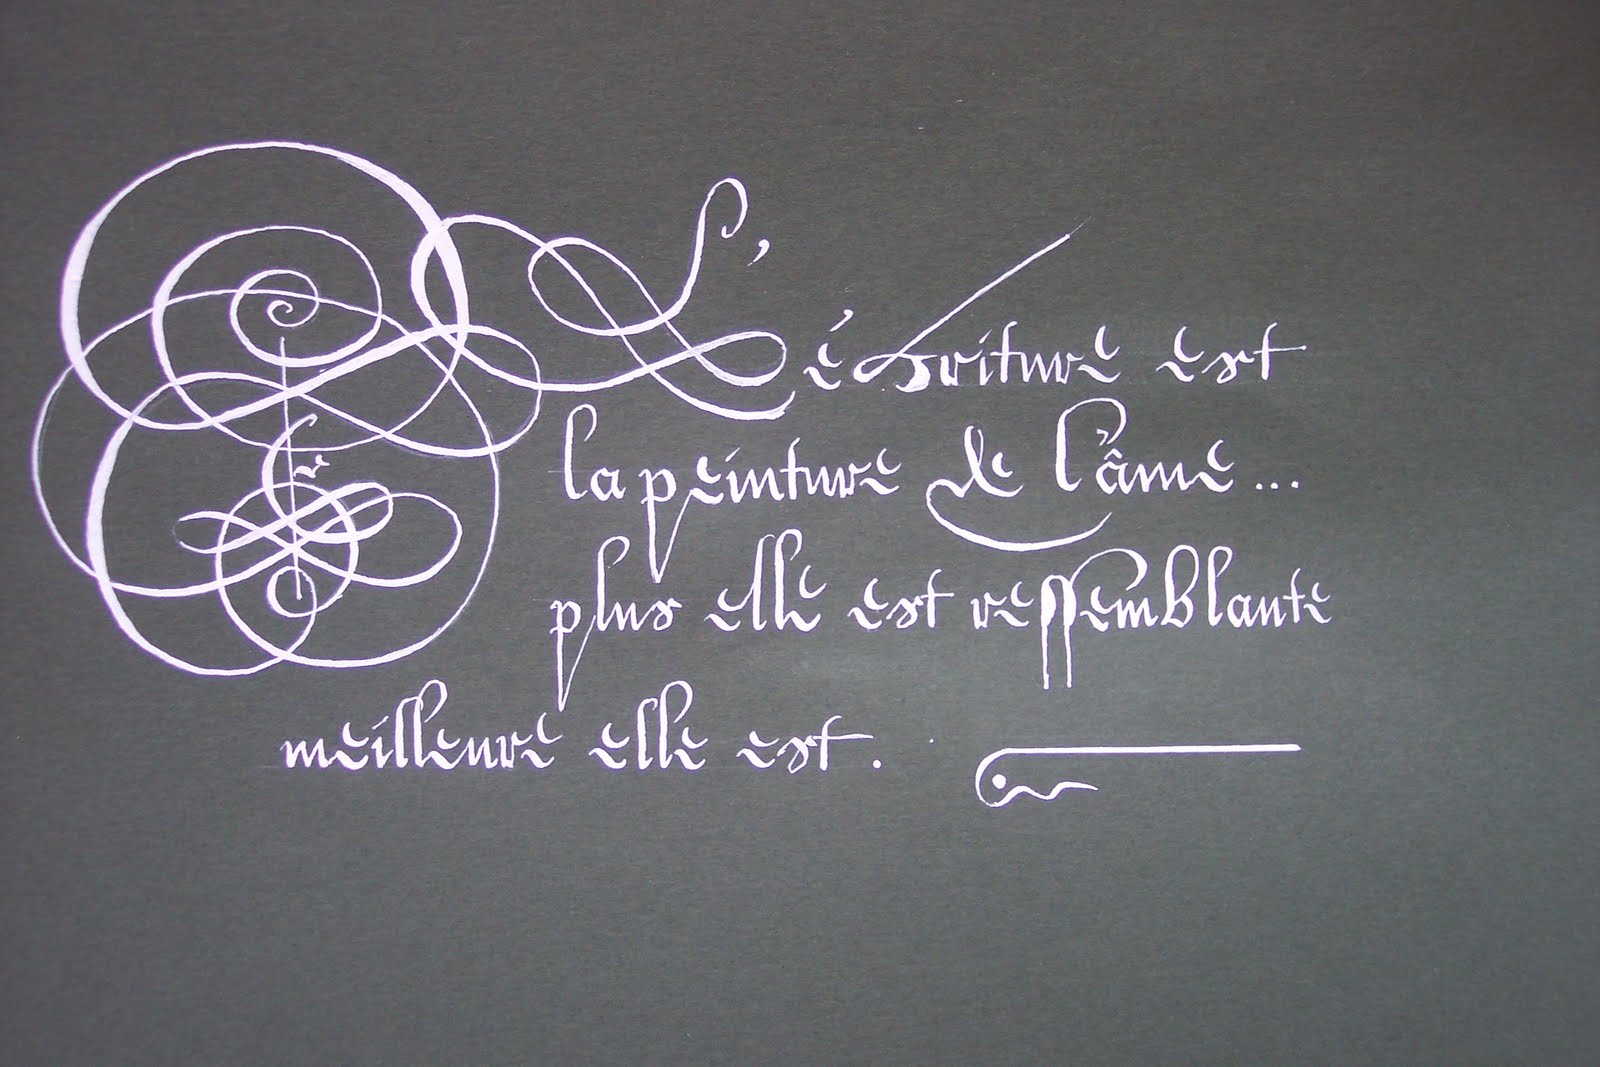 L'écriture est
la peinture de l'âme...
plus elle est ressemblante
meilleure elle est.